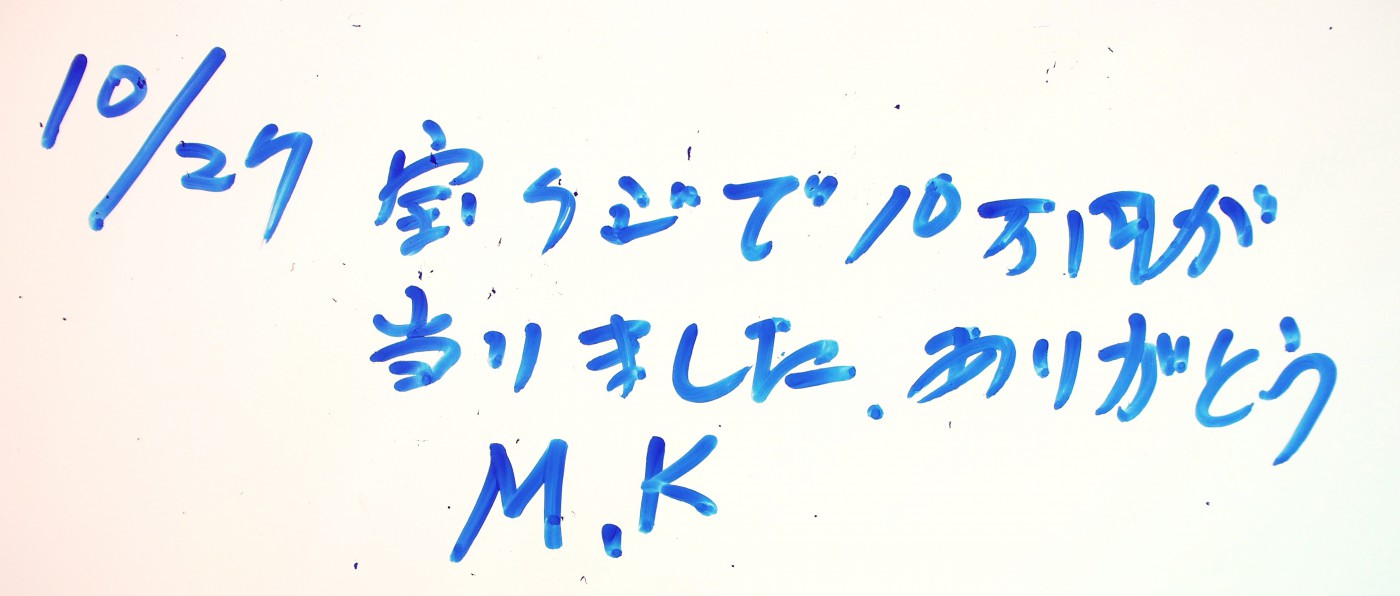 10/27 宝くじで10万円が
当りました.ありがとう
M.K